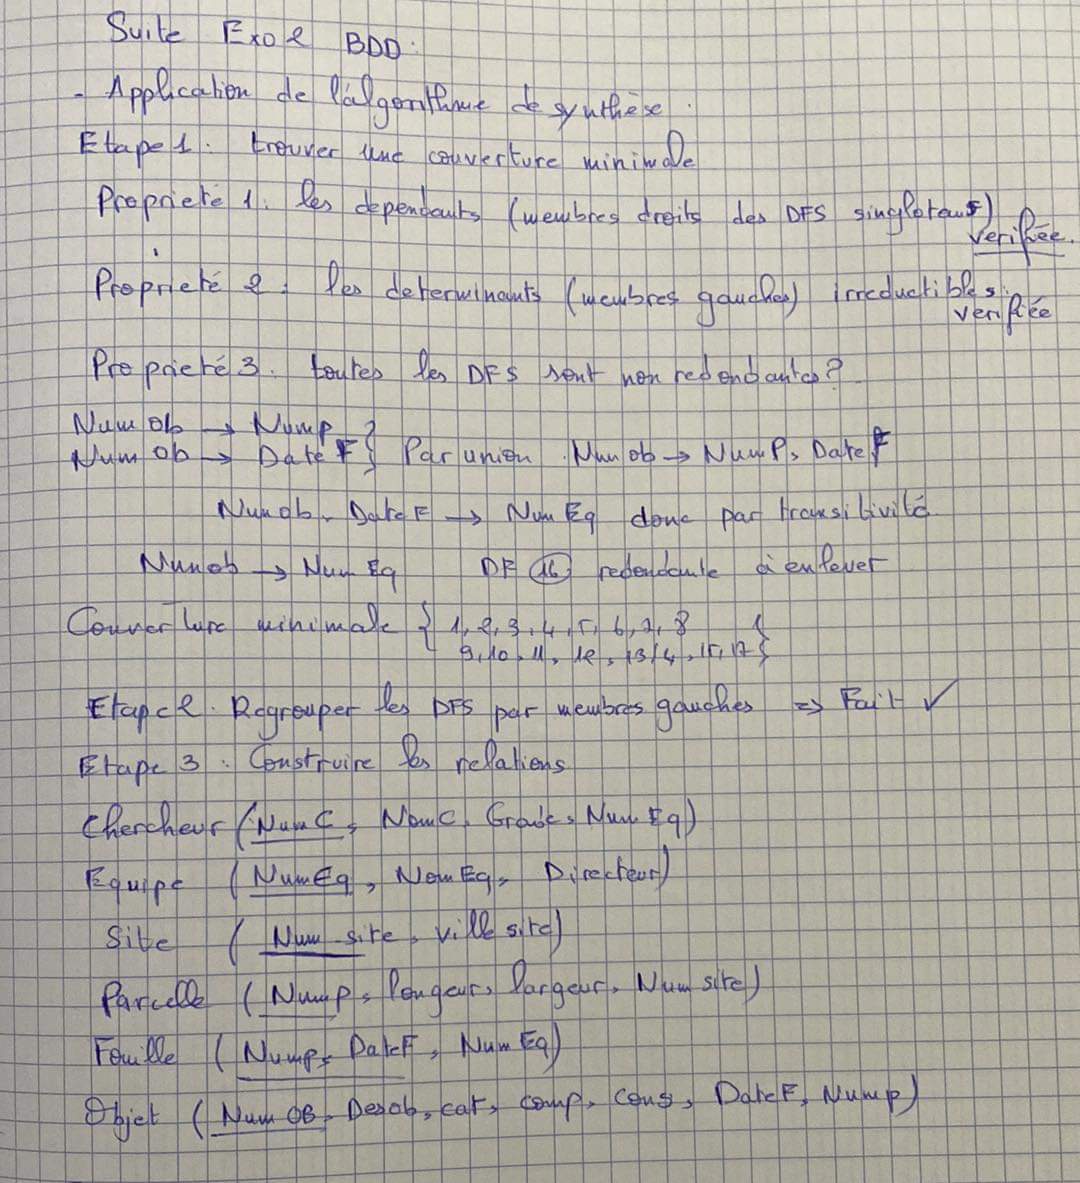 Suite Exo 2 BDD.
- Application de l'algorithme de synthèse.
Etape 1. trouver une couverture minimale
Propriété 1. les dependants (membres droits des DFS singletons) verifiée.
Propriété 2. les determinants (membres gauches) irreductibles. verifiée
Propriété 3. toutes les DFS sont non redondantes?
Num Ob → Nump
Num Ob → Date F } Par union. Num ob → NumP, Date F
Numob, DateF → Num Eq donc par transitivité
Numob → Num Eq DF 16 redendante à enlever
Couverture minimale { 1, 2, 3, 4, 5, 6, 7, 8
9, 10, 11, 12, 13, 14, 15, 17 }
Etape 2. Regrouper les DFS par membres gauches ⇒ Fait ✓
Etape 3. Construire les relations
Chercheur (NumC, NomC, Grade, Num Eq)
Equipe (NumEq, NomEq, Directeur)
Site (Num site, ville site)
Parcelle (Nump, longeur, largeur, Num site)
Fouille (Nump, DateF, NumEq)
Objet (Num OB, Desob, cat, comp, Cons, DateF, Nump)